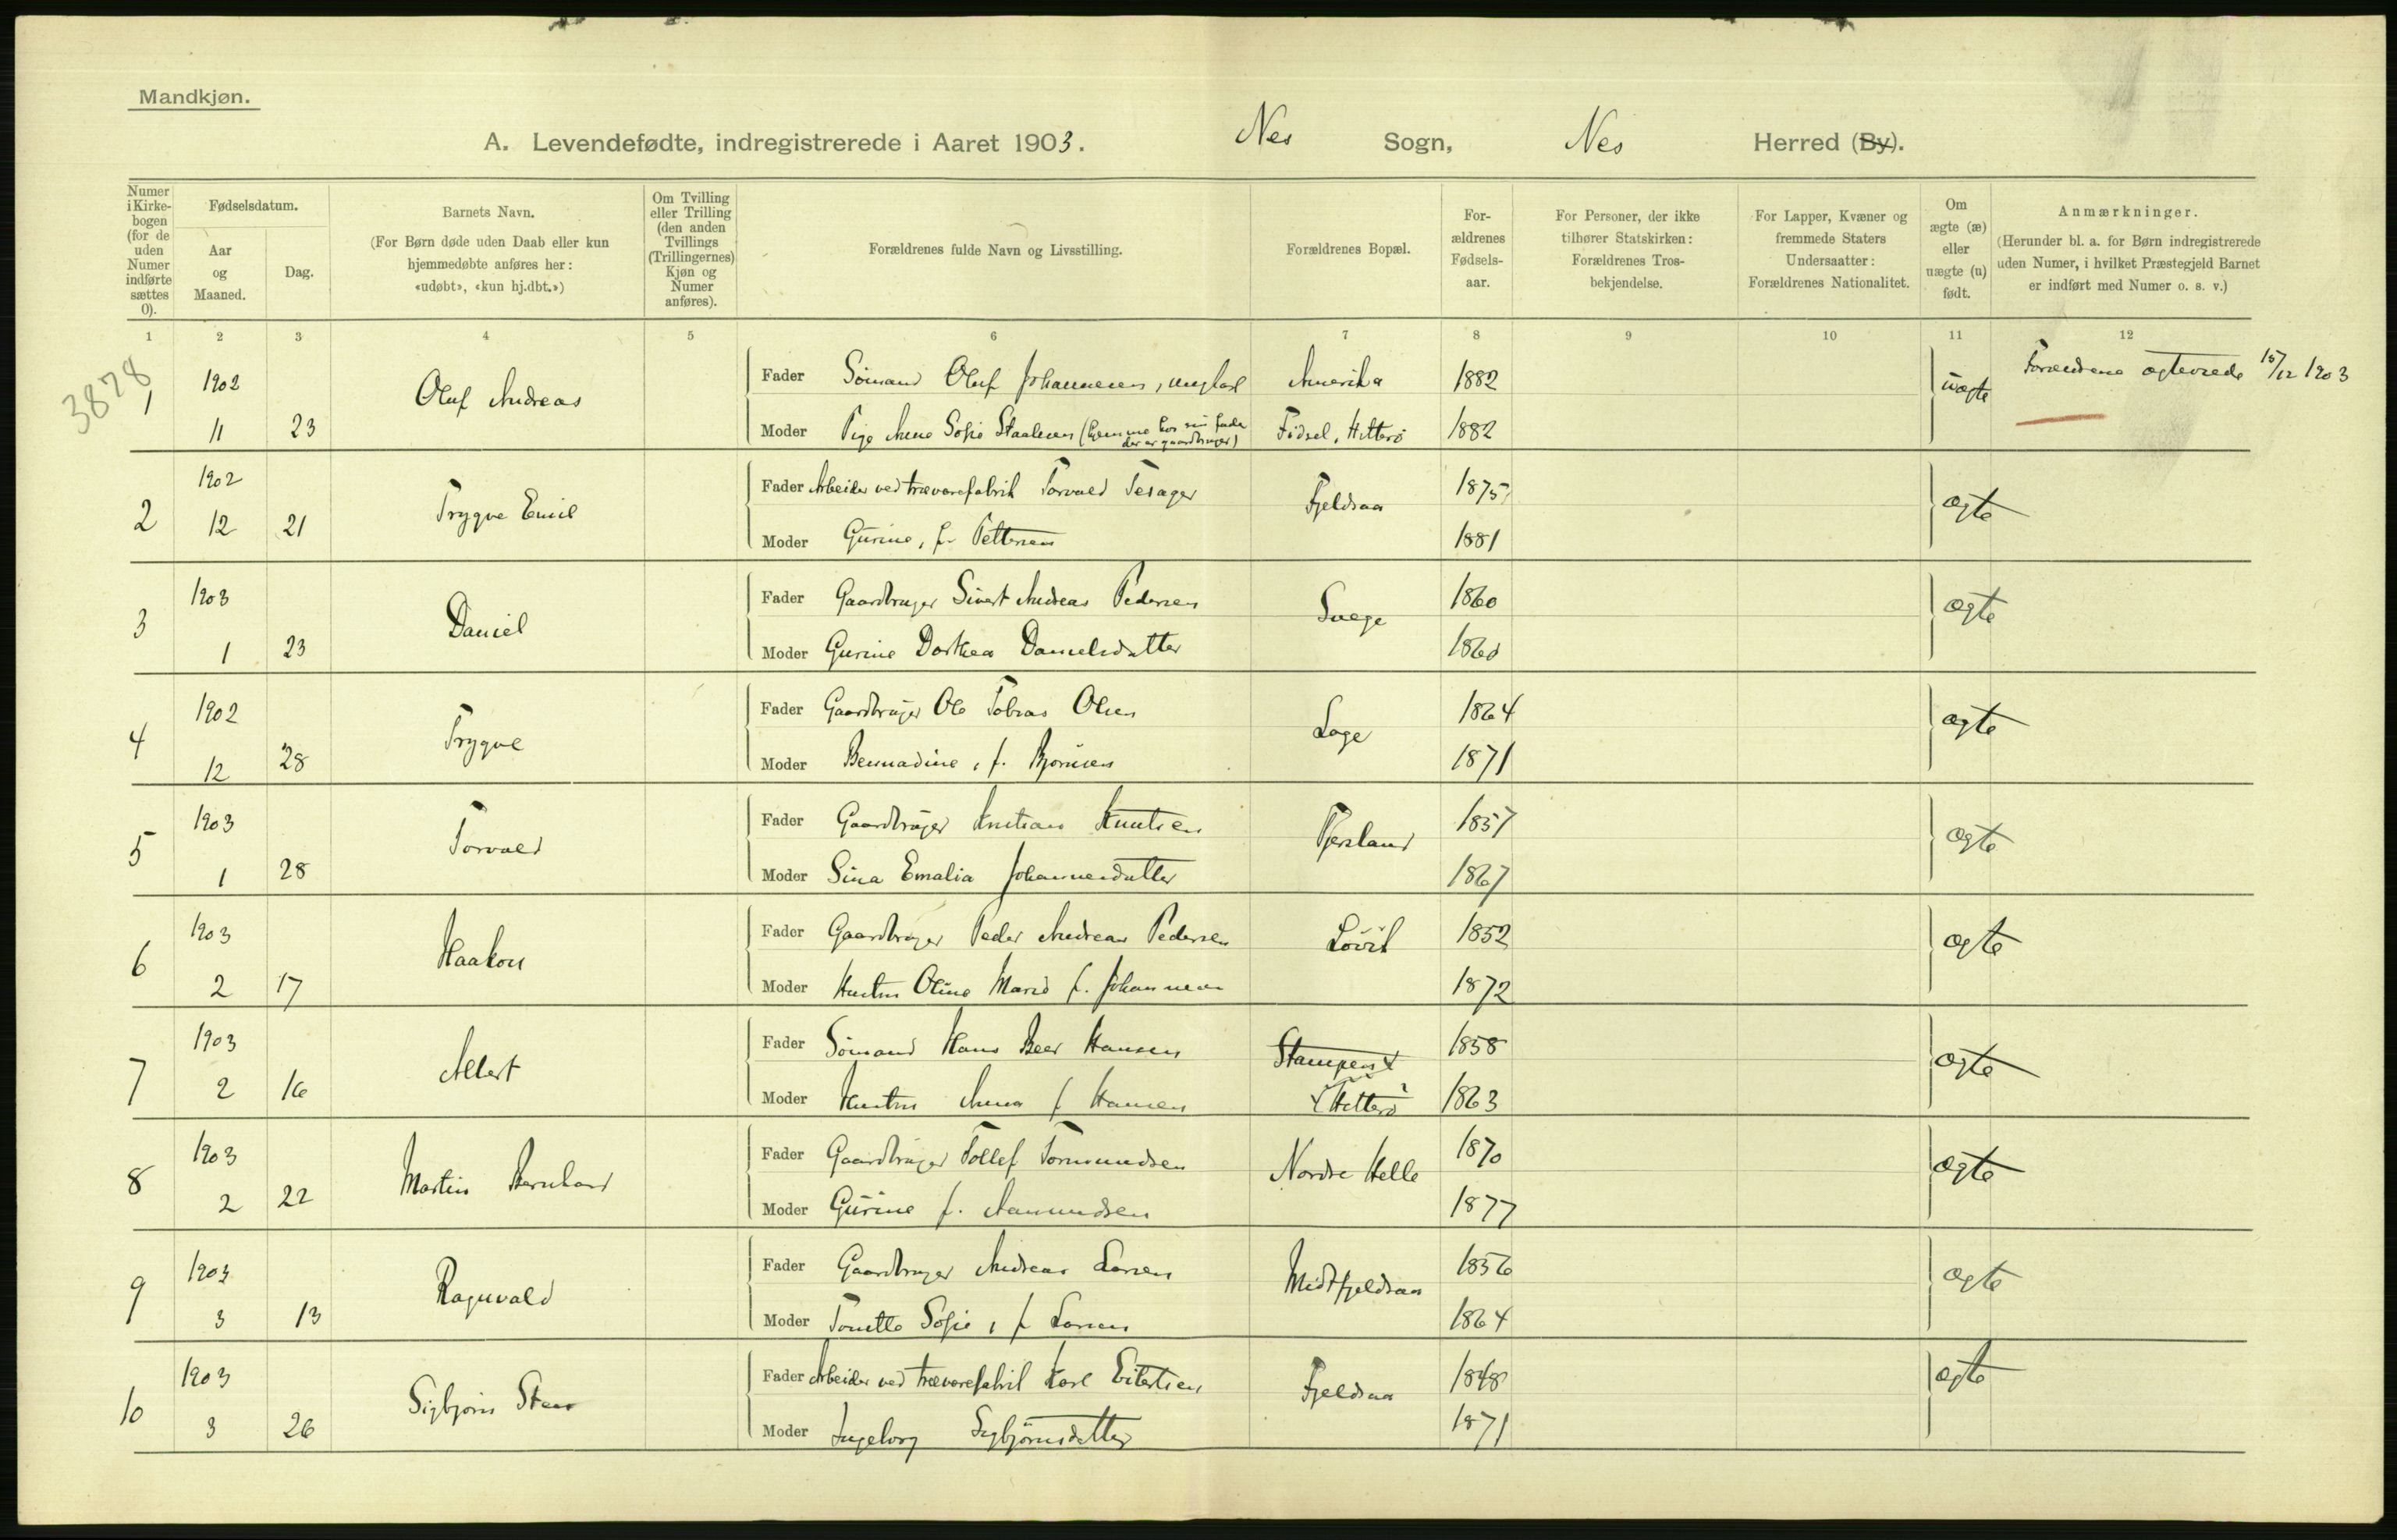 Mandkjøn.
A. Levendefødte, indregistrerede i Aaret 1903. Nes Sogn, Nes Herred (By).
Numer i Kirkebogen (for de uden Numer indførte sættes 0).
Fødselsdatum.
Aar og Maaned.
Dag.
Barnets Navn.
(For Børn døde uden Daab eller kun hjemmedøbte anføres her: «udøbt», «kun hj.dbt.»)
Om Tvilling eller Trilling (den anden Tvillings (Trillingernes) Kjøn og Numer anføres).
Forældrenes fulde Navn og Livsstilling.
Forældrenes Bopæl.
Forældrenes Fødselsaar.
For Personer, der ikke tilhører Statskirken: Forældrenes Trosbekjendelse.
For Lapper, Kvæner og fremmede Staters Undersaatter: Forældrenes Nationalitet.
Om ægte (æ) eller uægte (u) født.
Anmærkninger.
(Herunder bl. a. for Børn indregistrerede uden Numer, i hvilket Præstegjeld Barnet er indført med Numer o. s. v.)
1 2 3 4 5 6 7 8 9 10 11 12
3878
1 1902 Oluf Andreas Fader Sømand Oluf Johannesen, ungkarl Amerika 1882 uægte Forældrene ægteviede 15/12 1903
11 23 Moder Pige Anne Sofie Staalesen (hjemme hos sin fader der er gaardbruger) Fidsel, Hitterø 1882
2 1902 Trygve Emil Fader Arbeider ved trævarefabrik Torvald Tesager Fjeldsaa 1875 ægte
12 21 Moder Gurine, f. Pettersen 1881
3 1903 Daniel Fader Gaardbruger Sivert Andreas Pedersen Svege 1860 ægte
1 23 Moder Gurine Dorthea Danielsdatter 1860
4 1902 Trygve Fader Gaardbruger Ole Tobias Olsen Loge 1864 ægte
12 28 Moder Bernadine, f. Bjørnsen 1871
5 1903 Torvald Fader Gaardbruger Kristian Knutsen Tjersland 1857 ægte
1 28 Moder Sina Emalia Johannesdatter 1867
6 1903 Haakon Fader Gaardbruger Peder Andreas Pedersen Løvik 1852 ægte
2 17 Moder Hustru Oline Marie f. Johannesen 1872
7 1903 Albert Fader Sømand Hans Beer Hansen Stampen 1858 ægte
2 16 Moder Hustru Anna f Hansen Hitterø 1863
8 1903 Martin Bernhard Fader Gaardbruger Tollef Tormundsen Nordre Helle 1870 ægte
2 22 Moder Gurine f. Aamundsen 1877
9 1903 Ragnvald Fader Gaardbruger Andreas Larsen Midtfjeldsaa 1856 ægte
3 13 Moder Tonette Sofie, f Larsen 1864
10 1903 Sigbjørn Fader Arbeider ved trævarefabrik Karl Eilertsen Fjeldsaa 1848 ægte
3 26 Moder Ingeborg Sigbjørnsdatter 1871